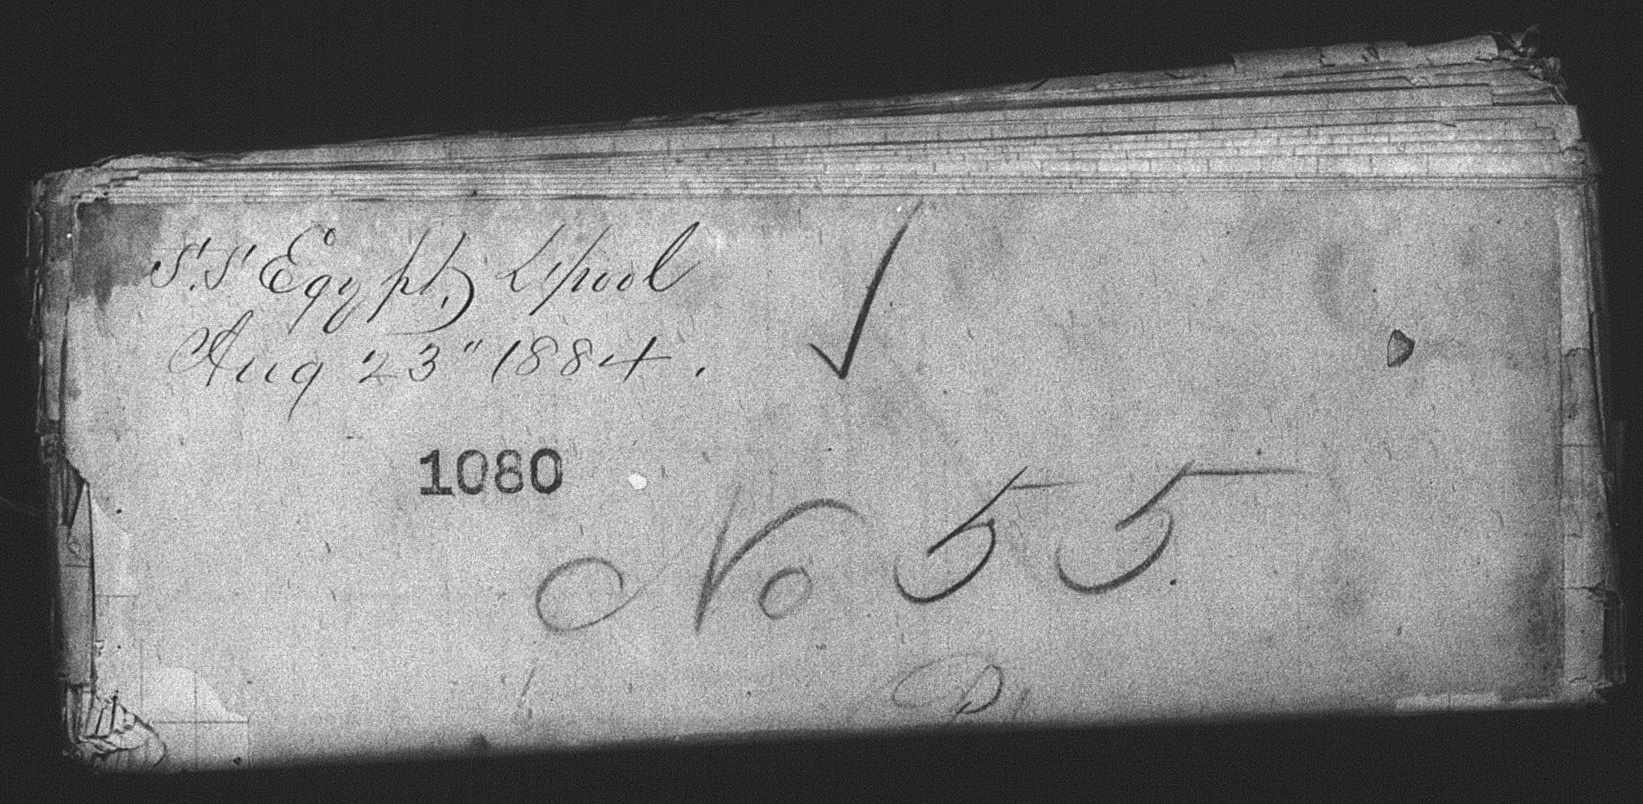 S.S Egypt, L'pool
Aug 23" 1884.
1080
No 55